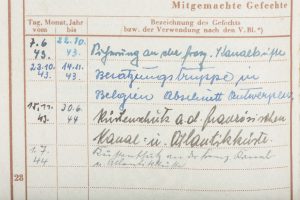 Mitgemachte Gefechte
Tag, Monat, Jahr
vom bis
Bezeichnung des Gefechts
bzw. der Verwendung nach den V. Bl.*)
7.6. 43. 22.10. 43. Sicherung an der franz. Kanalküste
23.10. 43. 14.11. 43. Besatzungstruppe in
Belgien Abschnitt Antwerpen
15.11. 43 30.6. 44 Küstenschutz a.d. französischen
Kanal- u. Atlantikküste.
1.7. 44 Küstenschutz an der franz. Kanal
u. Atlantikküste
28